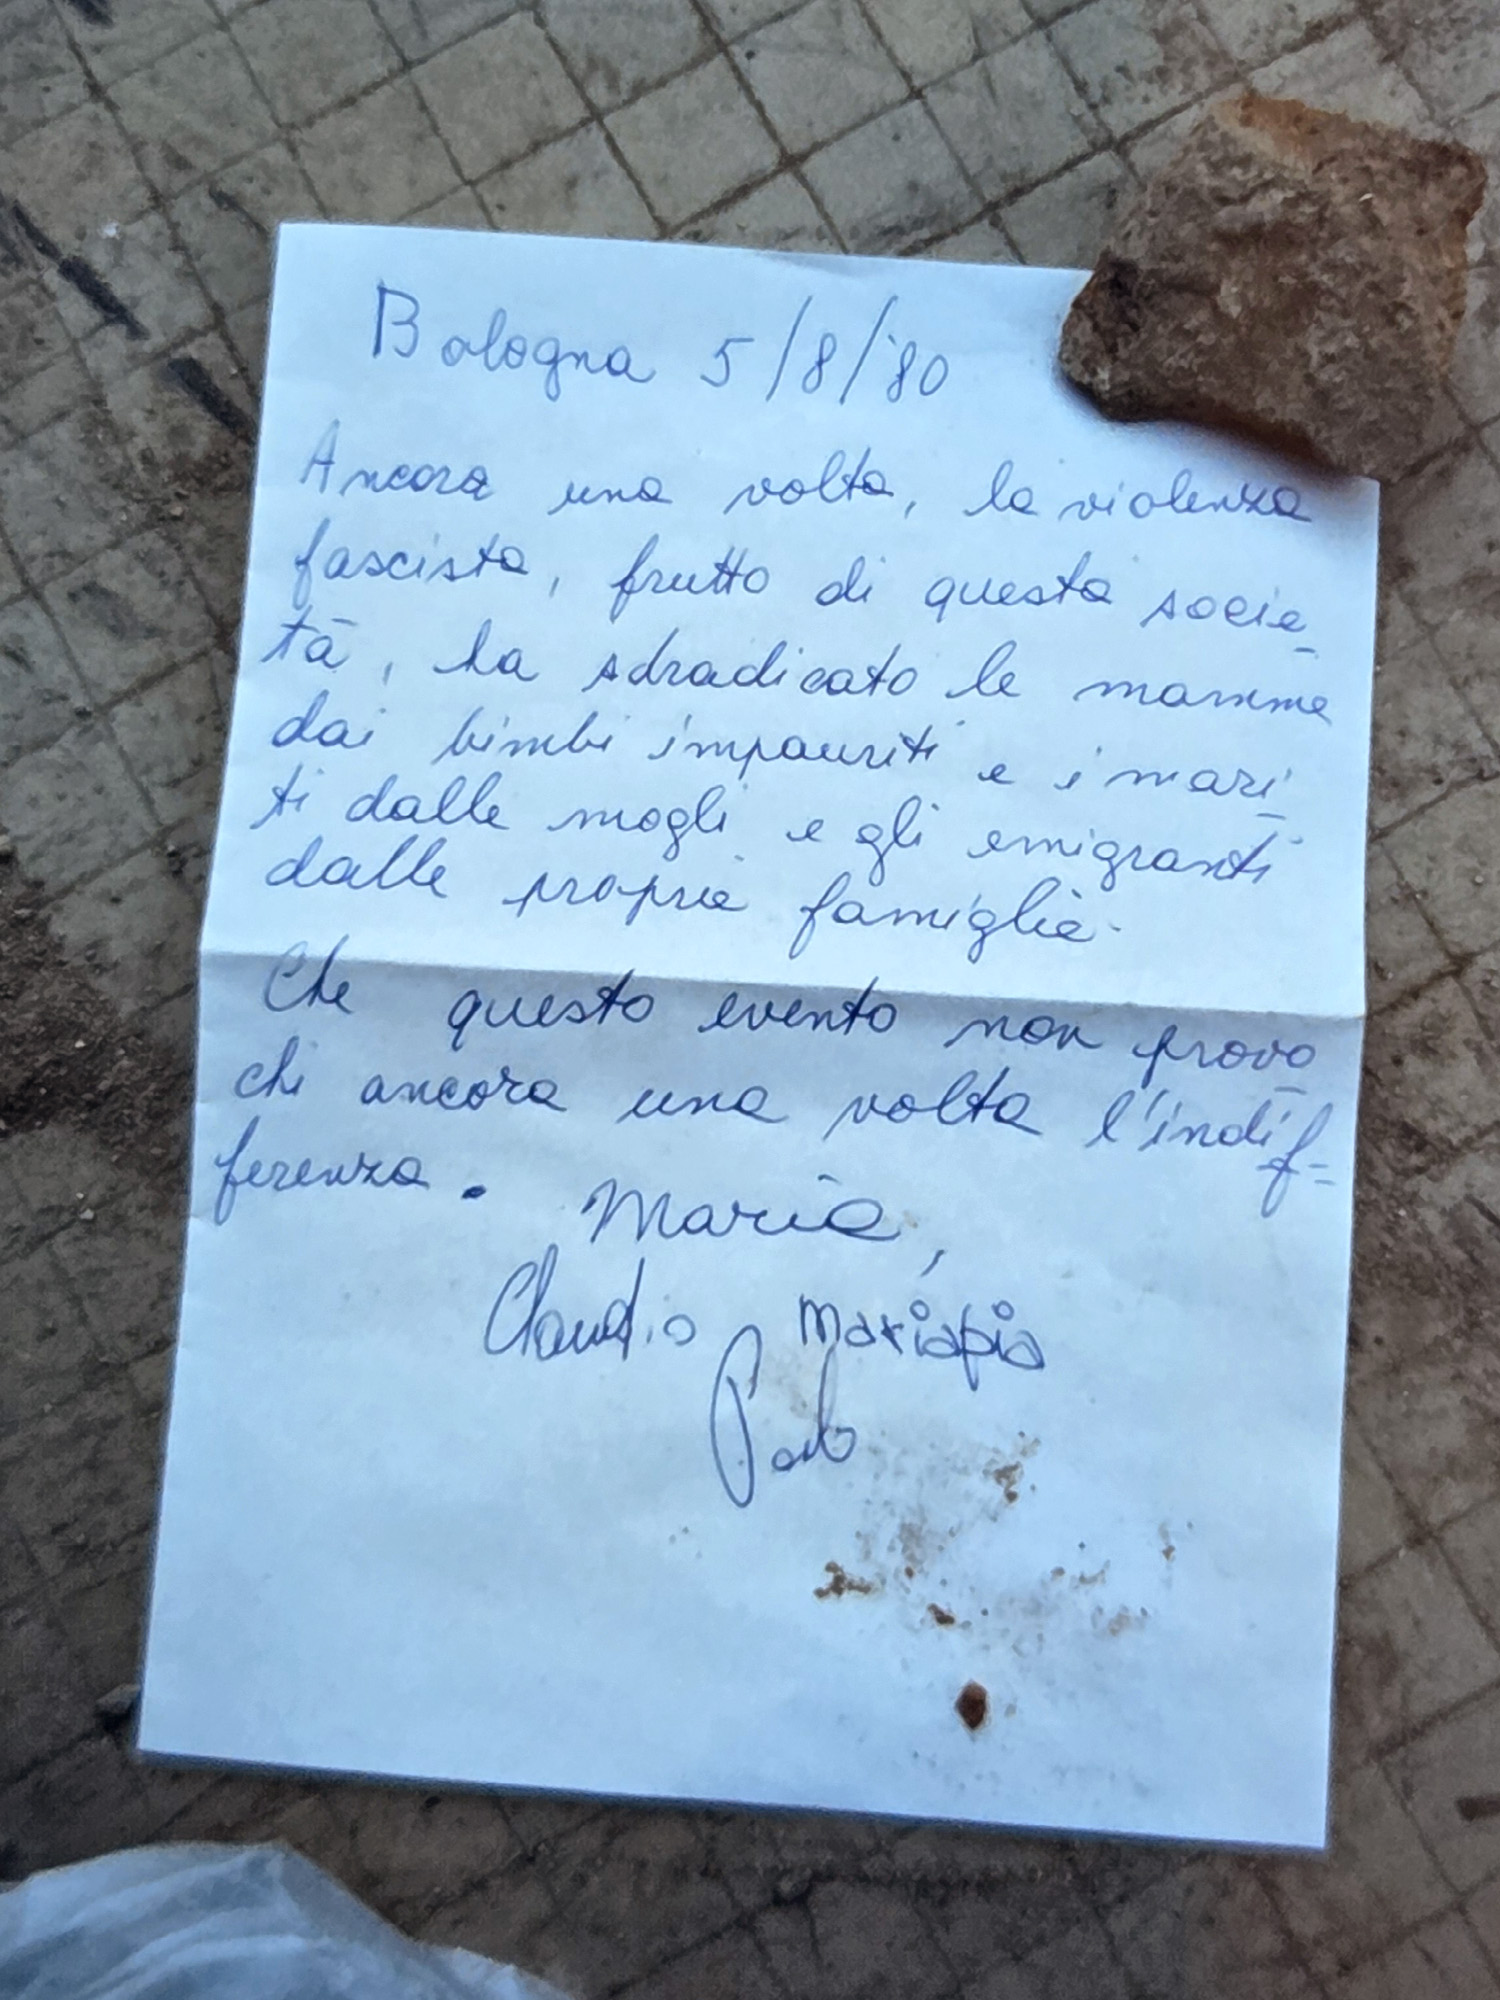 Bologna 5/8/'80
Ancora una volta, la violenza
fascista, frutto di questa socie_
tà, ha sdradicato le mamme
dai bimbi impauriti e i mari_
ti dalle mogli e gli emigranti
dalle proprie famiglie.
Che questo evento non provo_
chi ancora una volta l'indif=
ferenza. Maria,
Claudio Mariapia
Paolo